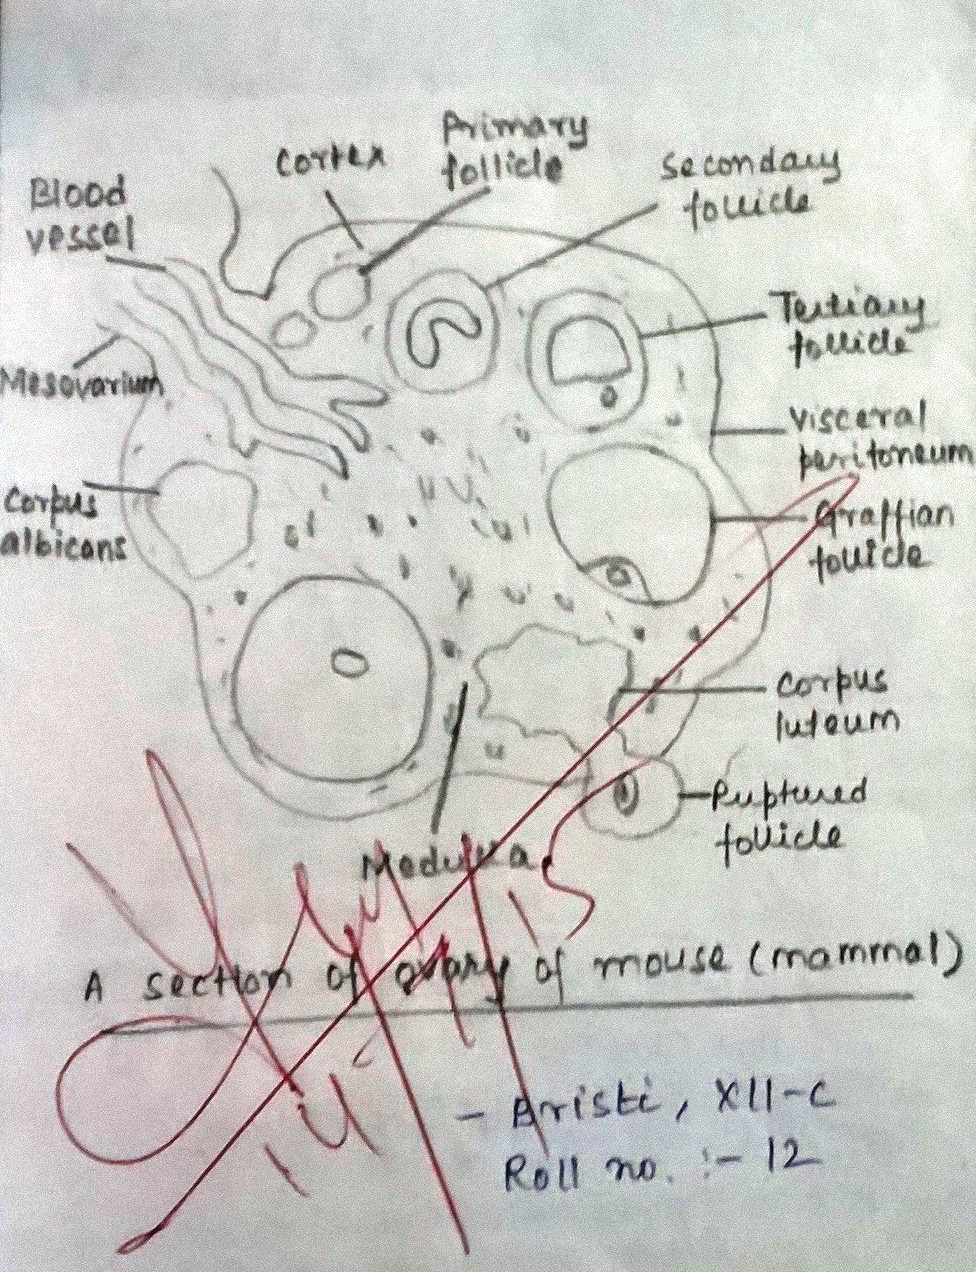 Primary
follicle
Cortex
Secondary
follicle
Blood
vessel
Tertiary
follicle
Mesovarium
Visceral
peritoneum
Corpus
albicans
Graffian
follicle
Corpus
luteum
Ruptured
follicle
Medulla
A section of ovary of mouse (mammal)
- Bristi, XII-C
Roll no. :- 12